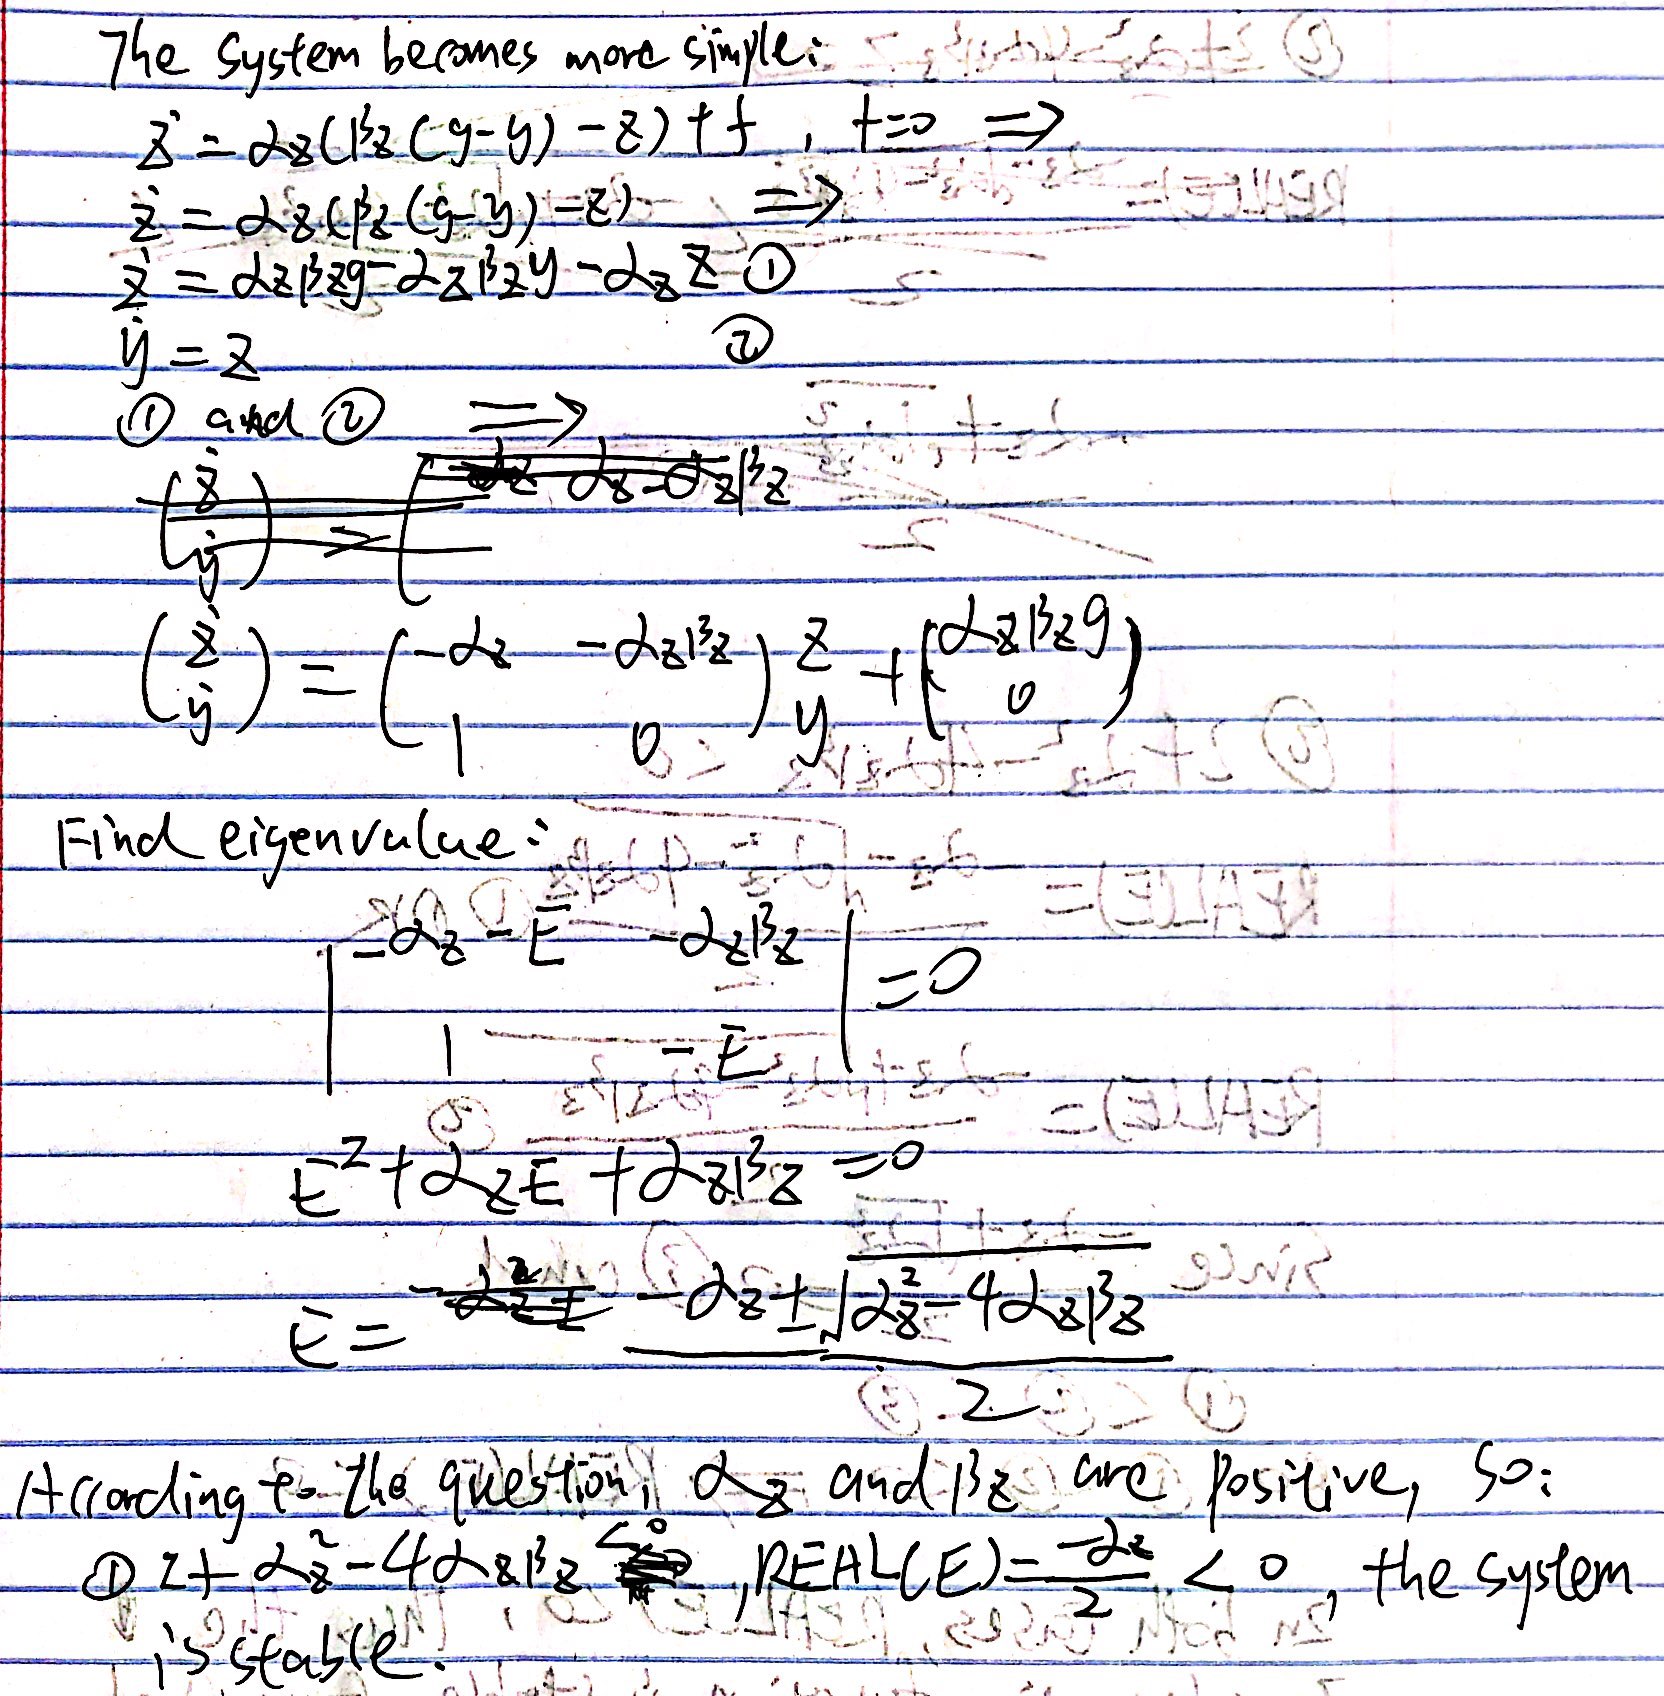 The system becomes more simple:
ż = αz(βz(g-y)-z)+f, f=0 ⇒
ż = αz(βz(g-y)-z) ⇒
ż = αzβzg-αzβzy-αzz ①
ẏ = z ②
① and ② ⇒
(ż
ẏ) = (-αz -αzβz
1 0) z
y + (αzβzg
0)
Find eigenvalue:
|-αz-E -αzβz
1 -E| = 0
E²+αzE+αzβz=0
E = -αz±√αz²-4αzβz
2
According to the question, αz and βz are positive, so:
① If αz²-4αzβz <0, REAL(E)=-αz/2 <0, the system
is stable.